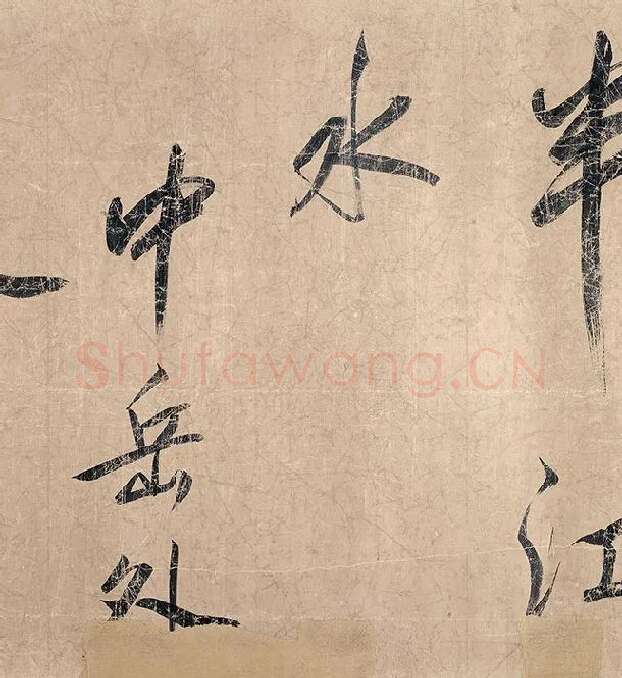 半江
水
中岳处
Shufawang.CN